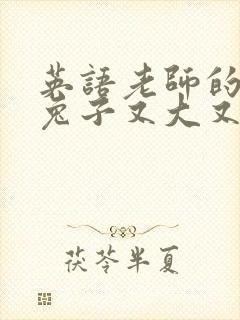 英語老師的
兔子又大又
茯苓半夏